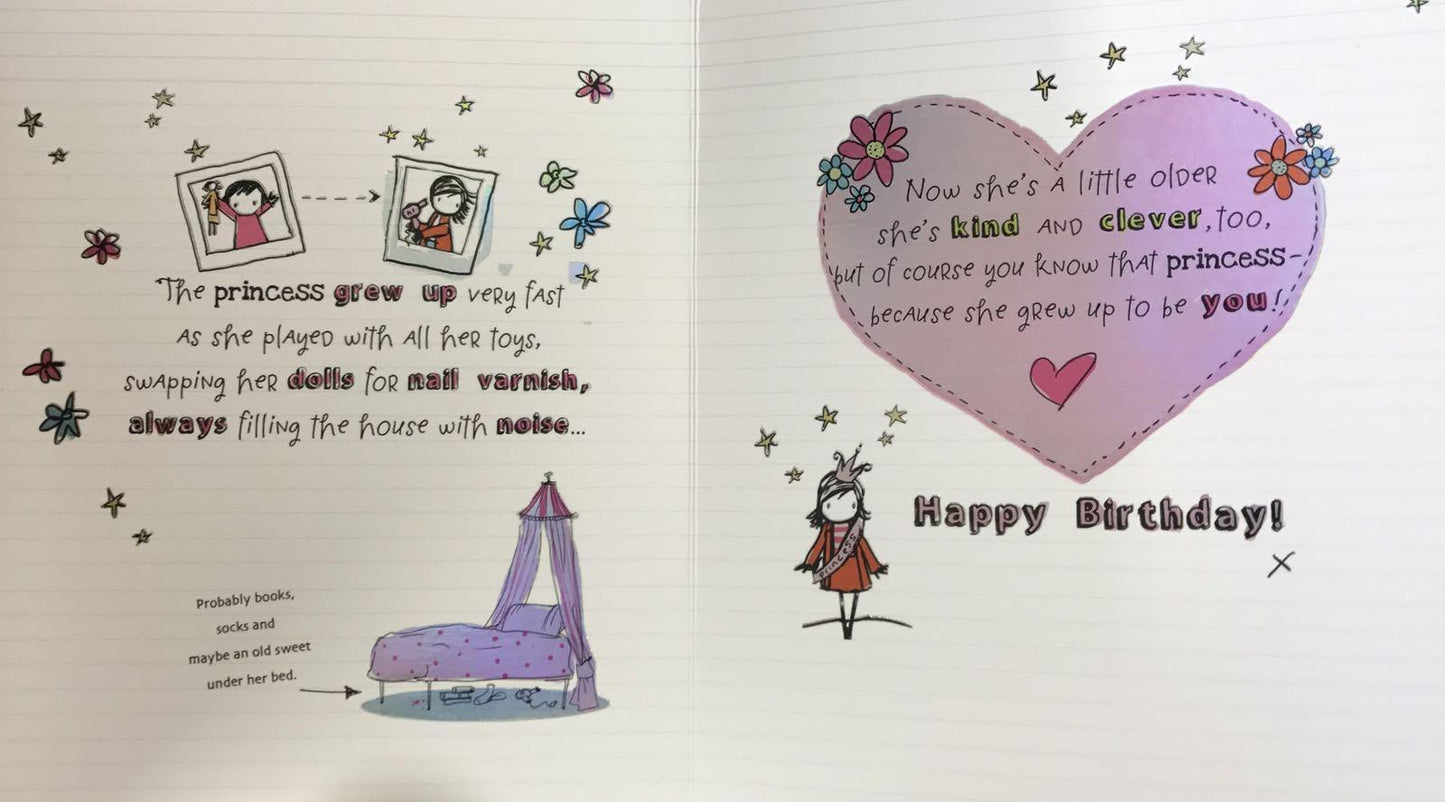 The princess grew up very fast
As she played with all her toys,
swapping her dolls for nail varnish,
always filling the house with noise...
Probably books,
socks and
maybe an old sweet
under her bed.
Now she's a little older
she's kind and clever, too,
but of course you know that princess-
because she grew up to be you!
princess
Happy Birthday!
x